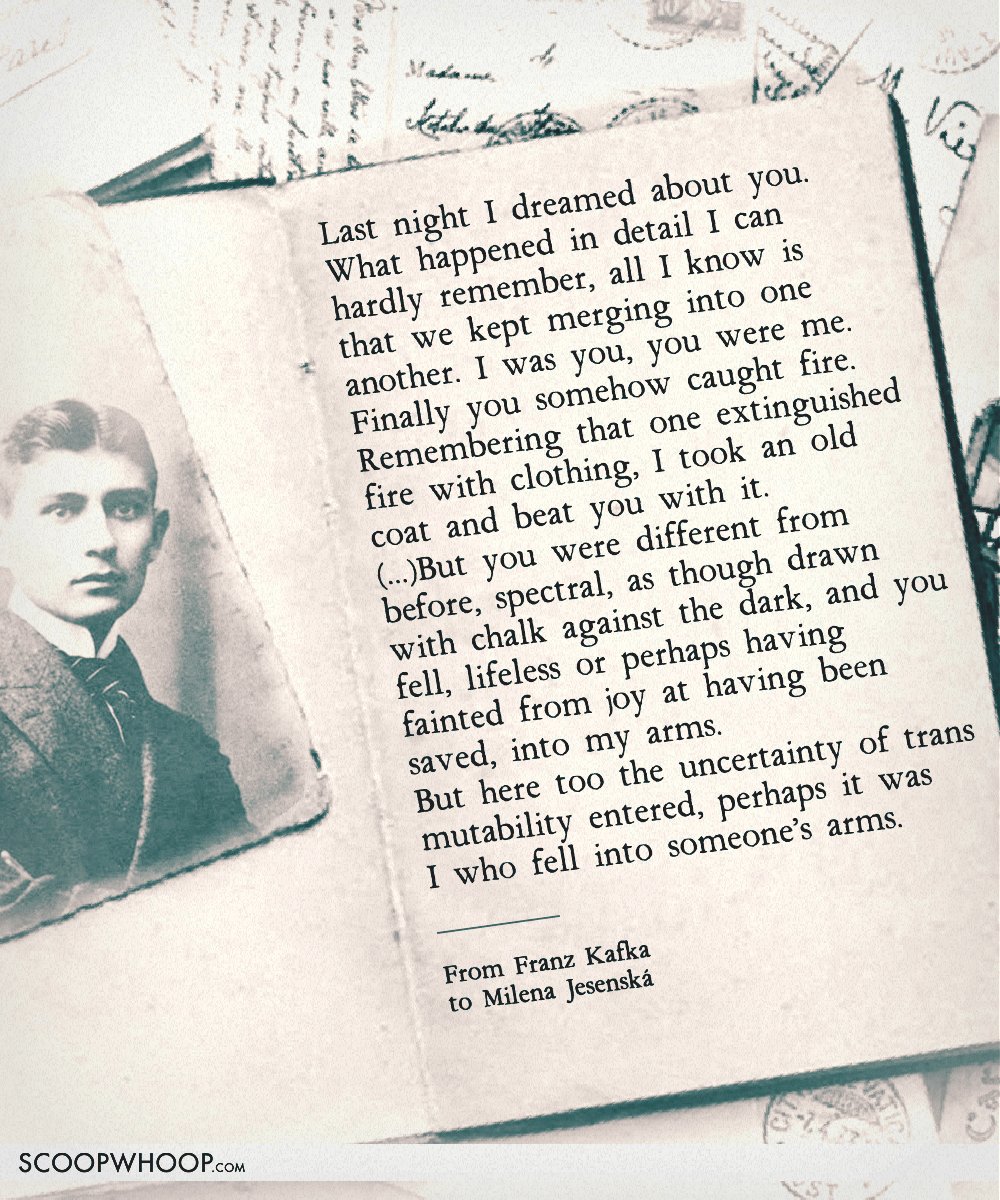 Madame
Last night I dreamed about you.
What happened in detail I can
hardly remember, all I know is
that we kept merging into one
another. I was you, you were me.
Finally you somehow caught fire.
Remembering that one extinguished
fire with clothing, I took an old
coat and beat you with it.
(...)But you were different from
before, spectral, as though drawn
with chalk against the dark, and you
fell, lifeless or perhaps having
fainted from joy at having been
saved, into my arms.
But here too the uncertainty of trans
mutability entered, perhaps it was
I who fell into someone's arms.
From Franz Kafka
to Milena Jesenská
SCOOPWHOOP.COM